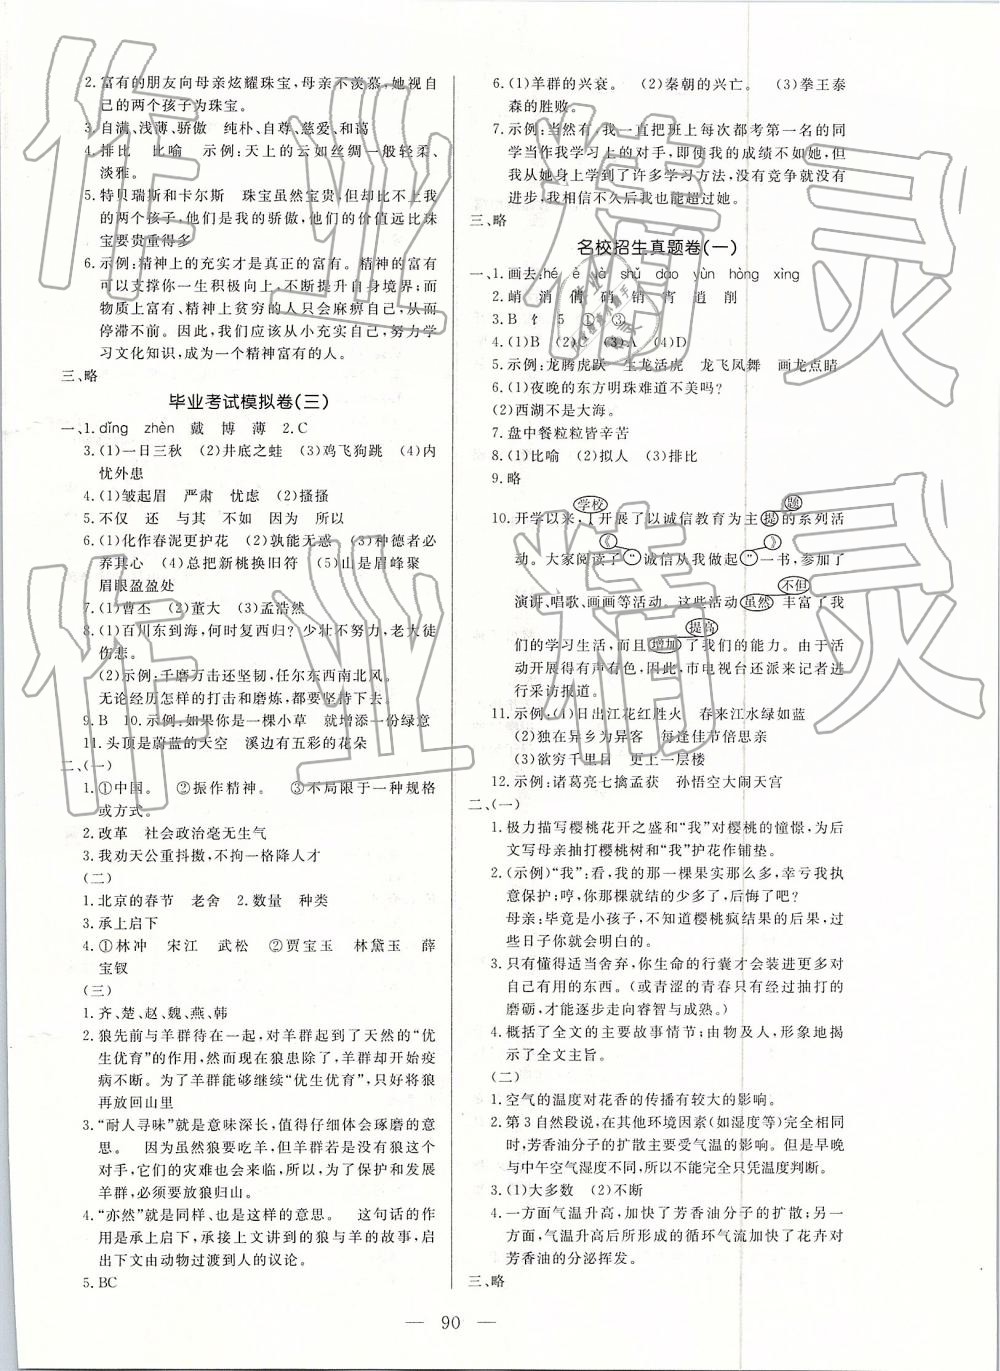 2. 富有的朋友向母亲炫耀珠宝,母亲不羡慕,她视自
己的两个孩子为珠宝。
3. 自满、浅薄、骄傲 纯朴、自尊、慈爱、和蔼
4. 排比 比喻 示例:天上的云如丝绸一般轻柔、
淡雅。
5. 特贝瑞斯和卡尔斯 珠宝虽然宝贵,但却比不上我
的两个孩子,他们是我的骄傲,他们的价值远比珠
宝要贵重得多
6. 示例:精神上的充实才是真正的富有。精神的富有
可以支撑你一生积极向上、不断提升自身境界,而
物质上富有、精神上贫穷的人只会麻痹自己,从而
停滞不前。因此,我们应该从小充实自己,努力学
习文化知识,成为一个精神富有的人。
三、略
毕业考试模拟卷(三)
一、1. dǐng zhèn 戴 博 薄 2. C
3. (1)一日三秋 (2)井底之蛙 (3)鸡飞狗跳 (4)内
忧外患
4. (1)皱起眉 严肃 忧虑 (2)搔搔
5. 不仅 还 与其 不如 因为 所以
6. (1)化作春泥更护花 (2)孰能无惑 (3)种德者必
养其心 (4)总把新桃换旧符 (5)山是眉峰聚
眉眼盈盈处
7. (1)曹丕 (2)董大 (3)孟浩然
8. (1)百川东到海,何时复西归?少壮不努力,老大徒
伤悲。
(2)示例:千磨万击还坚劲,任尔东西南北风。
无论经历怎样的打击和磨炼,都要坚持下去。
9. B 10. 示例:如果你是一棵小草 就增添一份绿意
11. 头顶是蔚蓝的天空 溪边有五彩的花朵
二、(一)
1. ①中国。 ②振作精神。 ③不局限于一种规格
或方式。
2. 改革 社会政治毫无生气
3. 我劝天公重抖擞,不拘一格降人才
(二)
1. 北京的春节 老舍 2. 数量 种类
3. 承上启下
4. ①林冲 宋江 武松 ②贾宝玉 林黛玉 薛
宝钗
(三)
1. 齐、楚、赵、魏、燕、韩
2. 狼先前与羊群待在一起,对羊群起到了天然的“优
生优育”的作用,然而现在狼患除了,羊群却开始疫
病不断。为了羊群能够继续“优生优育”,只好将狼
再放回山里
3. “耐人寻味”就是意味深长,值得仔细体会琢磨的意
思。 因为虽然狼要吃羊,但羊群若是没有狼这个
对手,它们的灾难也会来临,所以,为了保护和发展
羊群,必须要放狼归山。
4. “亦然”就是同样、也是这样的意思。 这句话的作
用是承上启下,承接上文讲到的狼与羊的故事,启
出下文由动物过渡到人的议论。
5. BC
6. (1)羊群的兴衰。 (2)秦朝的兴亡。 (3)拳王泰
森的胜败。
7. 示例:当然有,我一直把班上每次都考第一名的同
学当作我学习上的对手,即使我的成绩不如她,但
我从她身上学到了许多学习方法,没有竞争就没有
进步,我相信不久后我也能超过她。
三、略
名校招生真题卷(一)
一、1. 画去:hé è yà shǔ dao yùn hòng xing
2. 峭 消 俏 硝 销 宵 逍 削
3. B 亻 5 ① ③
4. (1)B (2)C (3)A (4)D
5. 示例:龙腾虎跃 生龙活虎 龙飞凤舞 画龙点睛
6. (1)夜晚的东方明珠难道不美吗?
(2)西湖不是大海。
7. 盘中餐粒粒皆辛苦
8. (1)比喻 (2)拟人 (3)排比
9. 略
学校 题
10. 开学以来,开展了以诚信教育为主提的系列活
《 》
动。大家阅读了“诚信从我做起”一书,参加了
不但
演讲、唱歌、画画等活动。这些活动虽然丰富了我
提高
们的学习生活,而且增加了我们的能力。由于活
动开展得有声有色,因此,市电视台还派来记者们
进行采访报道。
11. 示例:(1)日出江花红胜火 春来江水绿如蓝
(2)独在异乡为异客 每逢佳节倍思亲
(3)欲穷千里目 更上一层楼
12. 示例:诸葛亮七擒孟获 孙悟空大闹天宫
二、(一)
1. 极力描写樱桃花开之盛和“我”对樱桃的憧憬,为后
文写母亲抽打樱桃树和“我”护花作铺垫。
2. (示例)“我”:看,我的那一棵果实那么多,幸亏我执
意保护;哼,你那棵就结的少多了,后悔了吧?
母亲:毕竟是小孩子,不知道樱桃疯结果的后果,过
些日子你就会明白的。
3. 只有懂得适当舍弃,你生命的行囊才会装进更多对
自己有用的东西。(或青涩的青春只有经过抽打的
磨砺,才能逐步走向睿智与成熟。)
4. 概括了全文的主要故事情节;由物及人,形象地揭
示了全文主旨。
(二)
1. 空气的温度对花香的传播有较大的影响。
2. 第3自然段说,在其他环境因素(如湿度等)完全相同
时,芳香油分子的扩散主要受气温的影响。但是早晚
与中午空气湿度不同,所以不能完全只凭温度判断。
3. (1)大多数 (2)不断
4. 一方面气温升高,加快了芳香油分子的扩散;另一
方面,气温升高后所形成的循环气流加快了花卉对
芳香油的分泌挥发。
三、略
— 90 —
作业精灵
作业精灵